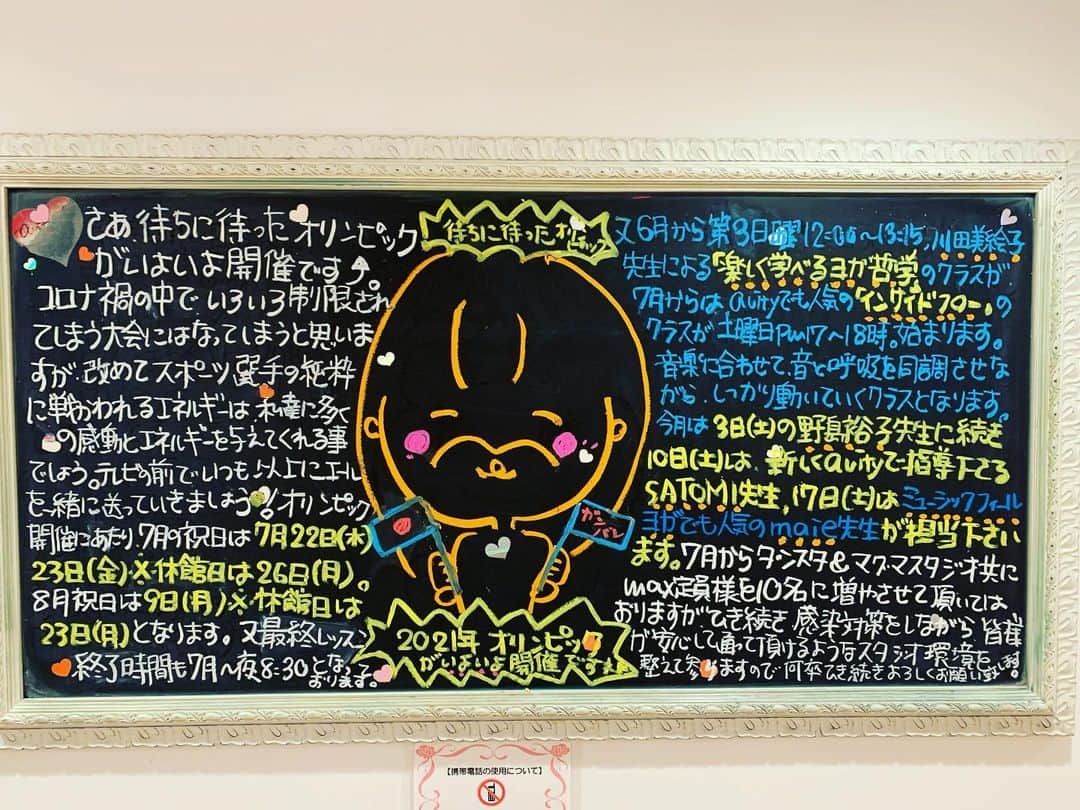 さあ、待ちに待ったオリンピック
がいよいよ開催です。
コロナ禍の中でいろいろ制限され
てしまう大会にはなってしまうと思いま
すが、改めてスポーツ選手の純粋
に戦われるエネルギーは私達に多く
の感動とエネルギーを与えてくれる事
でしょう。テレビの前でいつも以上にエール
を一緒に送っていきましょう!オリンピック
開催にあたり、7月の祝日は7月22日(木)
23日(金)※休館日は26日(月)。
8月祝日は9日(月)※休館日は
23日(月)となります。又最終レッスン
終了時間も7月〜夜8:30となって
おります。
待ちに待ったオリンピック
ガンバレ
2021年オリンピック
がいよいよ開催ですね
又6月から第3日曜12:00〜13:15,川田美絵子
先生による「楽しく学べるヨガ哲学」のクラスが
7月からはauityでも人気の「インサイドフロー」の
クラスが土曜日Pm17〜18時。始まります。
音楽に合わせて、音と呼吸を同調させな
がら、しっかり動いていくクラスとなります。
今月は3日(土)の野島裕子先生に続き
10日(土)は、新しくauityで指導下さる
SATOMI先生,17日(土)はミュージックフィール
ヨガでも人気のmaie先生が担当下さい
ます。7月からタンスタ&マグマスタジオ共に
max定員様を10名に増やさせて頂いては
おりますがひき続き感染対策をしながら皆様
が安心して通って頂けるようなスタジオ環境を
整えて参りますので何卒ひき続きよろしくお願い致します。
【携帯電話の使用について】